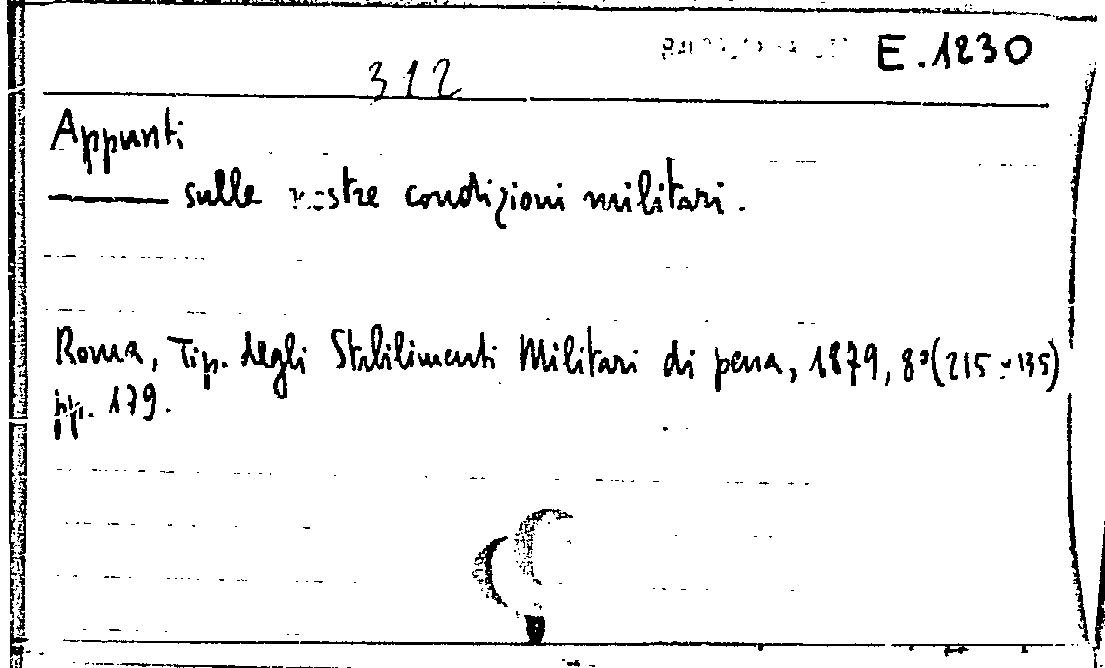 E.1230
312
Appunti
—— sulle nostre condizioni militari.
Roma, Tip. degli Stabilimenti Militari di pena, 1879, 8°(215×135)
pp. 179.